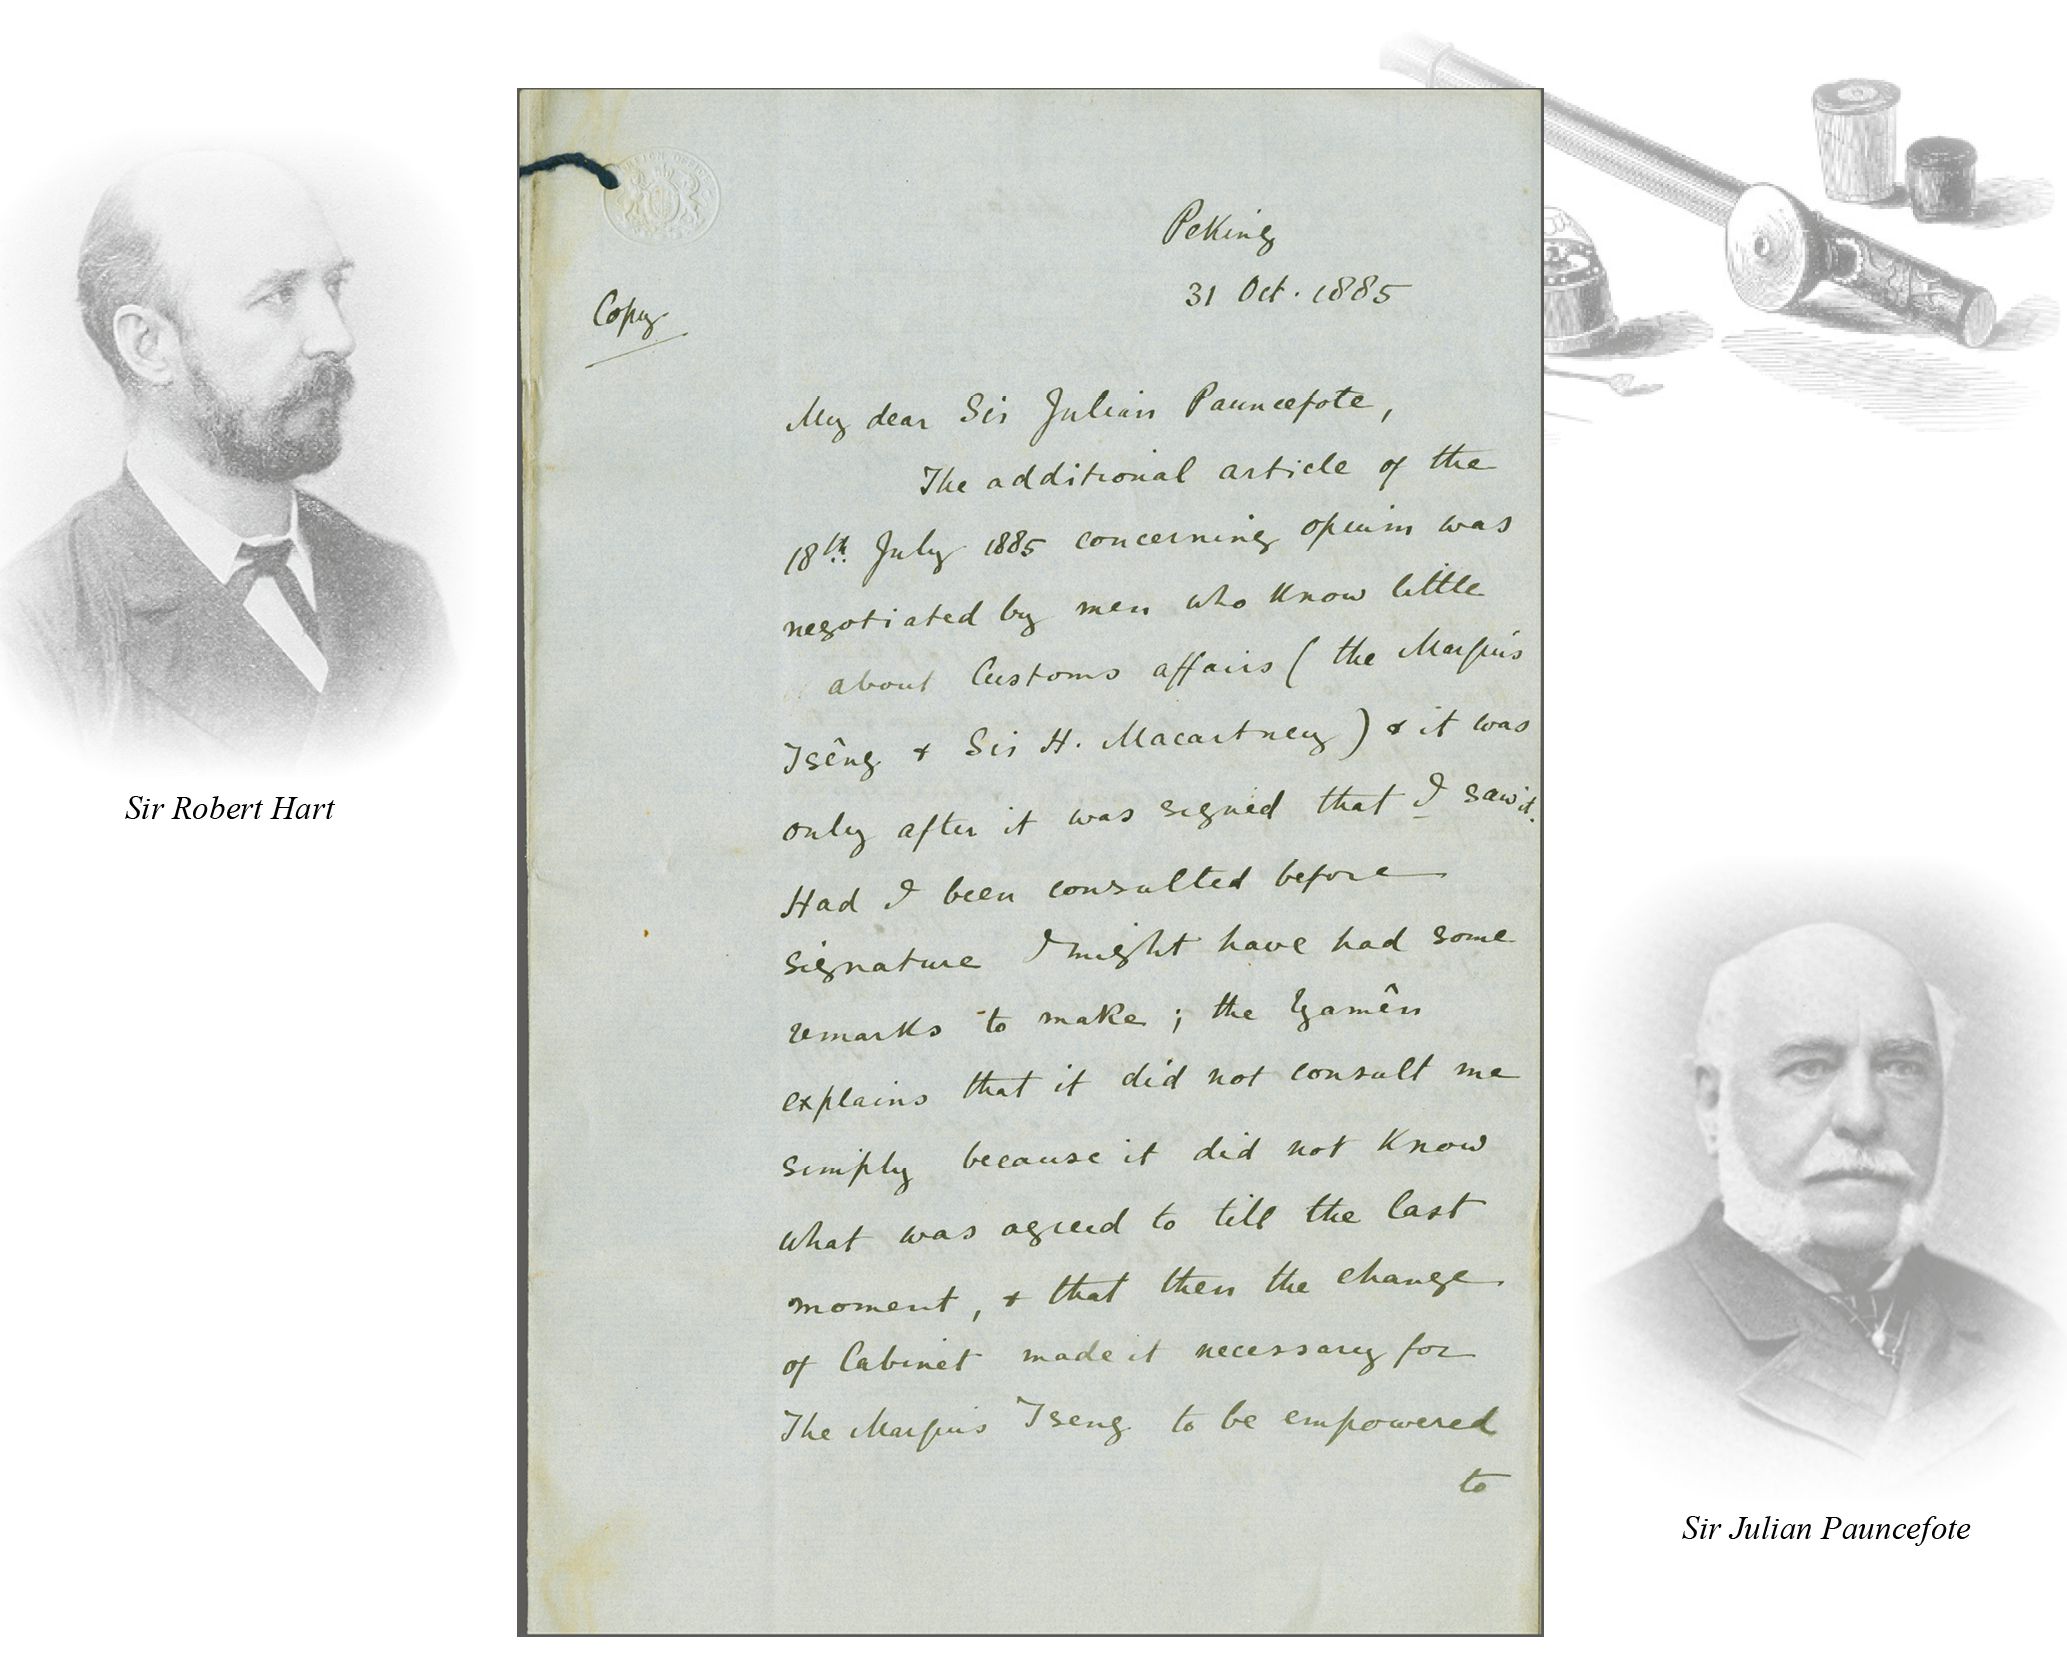 FOREIGN OFFICE
Peking
31 Oct. 1885
Copy
My dear Sir Julian Pauncefote,
The additional article of the
18th July 1885 concerning opium was
negotiated by men who know little
about Customs affairs (the Marquis
Tsêng & Sir H. Macartney) & it was
only after it was signed that I saw it.
Had I been consulted before
signature I might have had some
remarks to make; the Yamên
explains that it did not consult me
simply because it did not know
what was agreed to till the last
moment, & that then the change
of Cabinet made it necessary for
The Marquis Tseng to be empowered
to
Sir Robert Hart
Sir Julian Pauncefote